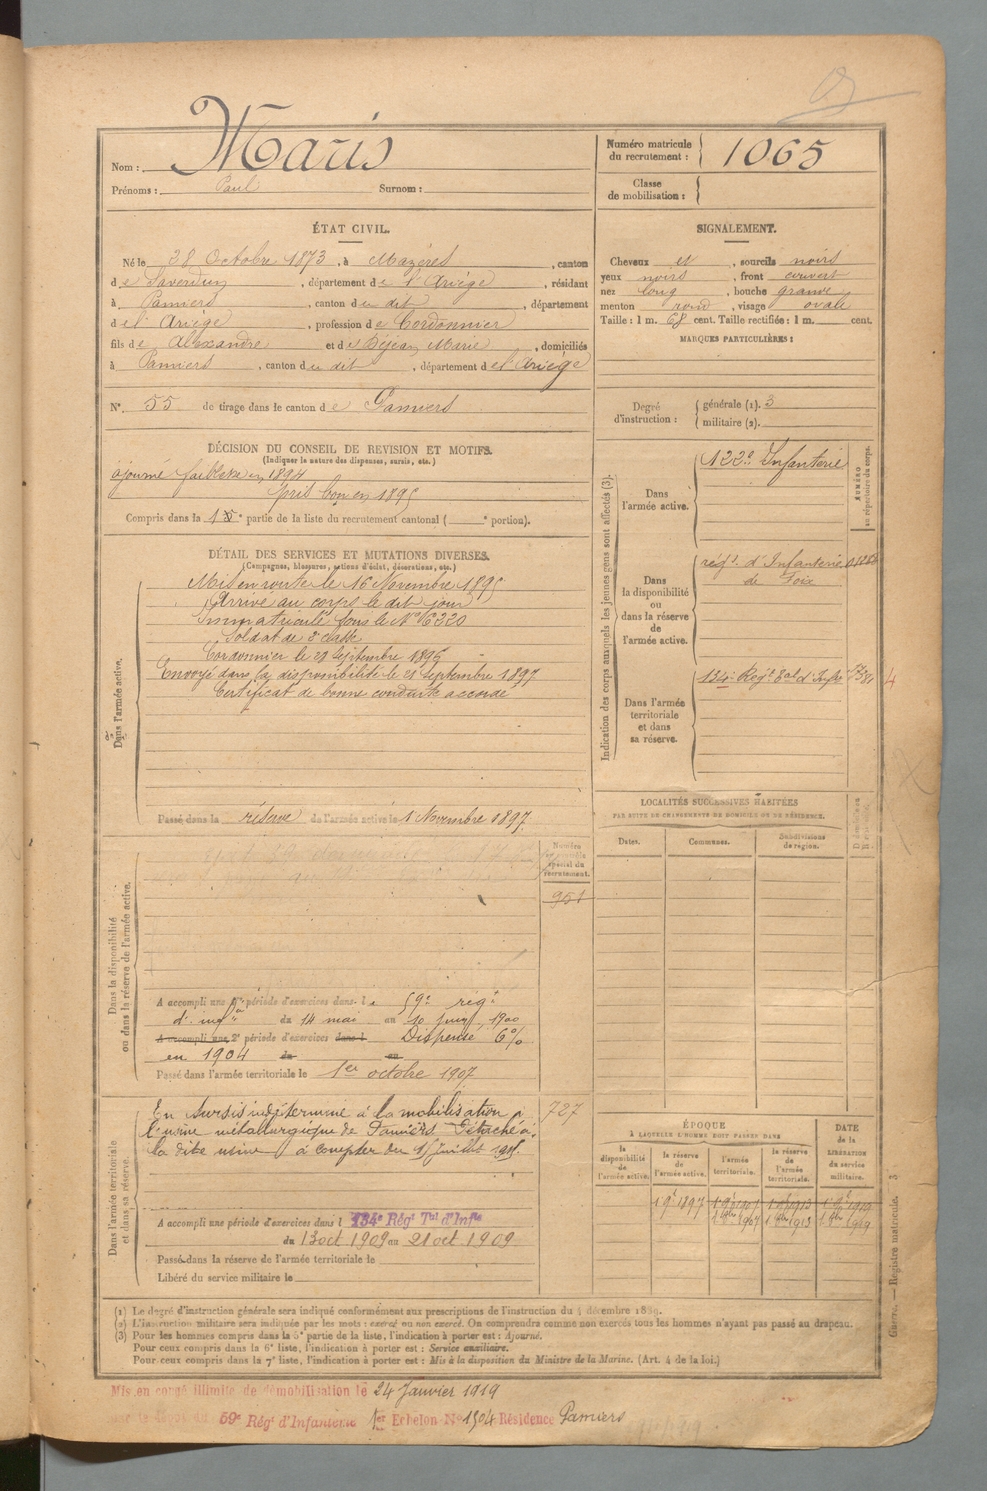 Nom : Maris
Numéro matricule du recrutement : 1065
Prénoms : Paul Surnom :
Classe de mobilisation :
ÉTAT CIVIL.
Né le 28 Octobre 1873, à Mazères, canton
de Saverdun, département de l'Ariège, résidant
à Pamiers, canton du dit, département
de l'Ariège, profession de Cordonnier
fils de Alexandre et de Bejean Marie, domiciliés
à Pamiers, canton du dit, département de l'Ariège
N° 55 de tirage dans le canton de Pamiers
SIGNALEMENT.
Cheveux et, sourcils noirs
yeux noirs, front couvert
nez long, bouche grande
menton rond, visage ovale
Taille : 1 m. 68 cent. Taille rectifiée : 1 m. cent.
MARQUES PARTICULIÈRES :
Degré d'instruction : générale (1). 3
militaire (2).
DÉCISION DU CONSEIL DE REVISION ET MOTIFS.
(Indiquer la nature des dispenses, sursis, etc.)
ajourné faiblesse en 1894
pris bon en 1895
Compris dans la 1e partie de la liste du recrutement cantonal ( e portion).
DÉTAIL DES SERVICES ET MUTATIONS DIVERSES.
(Campagnes, blessures, actions d'éclat, décorations, etc.)
Dans l'armée active.
Mis en route le 16 Novembre 1895
Arrivé au corps le dit jour
Immatriculé sous le N° 6220
Soldat de 2e classe
Cordonnier le 28 Septembre 1896
Envoyé dans la disponibilité le 21 Septembre 1897
Certificat de bonne conduite accordé
Passé dans la réserve de l'armée active le 1 Novembre 1897
Indication des corps auxquels les jeunes gens sont affectés (3).
NUMÉRO au répertoire du corps.
Dans l'armée active.
122e Infanterie
Dans la disponibilité ou dans la réserve de l'armée active.
régt d'Infanterie
de Foix
Dans l'armée territoriale et dans sa réserve.
134e Régt Tal d'Infie
4
LOCALITÉS SUCCESSIVES HABITÉES
PAR SUITE DE CHANGEMENTS DE DOMICILE OU DE RÉSIDENCE.
Dates. Communes. Subdivisions de région.
Dans la disponibilité ou dans la réserve de l'armée active.
Numéro au contrôle spécial du recrutement.
951
A accompli une 1re période d'exercices dans le 59e régt
d'infie du 14 mai au 10 juin 1900
A accompli une 2e période d'exercices dans l Dispensé 6%
en 1904 du au
Passé dans l'armée territoriale le 1er octobre 1907
Dans l'armée territoriale et dans sa réserve.
727
En sursis indéterminé à la mobilisation p
l'usine métallurgique de Pamiers Détaché à
la dite usine à compter du 1er Juillet
A accompli une période d'exercices dans l 134e Régt Tal d'Infie
du 13 oct 1909 au 21 oct 1909
Passé dans la réserve de l'armée territoriale le
Libéré du service militaire le
ÉPOQUE
À LAQUELLE L'HOMME DOIT PASSER DANS
DATE de la LIBÉRATION du service militaire.
la disponibilité de l'armée active. la réserve de l'armée active. l'armée territoriale. la réserve de l'armée territoriale.
1 9e 1897 1 9e 1907 1 9e 1913 1 9e 1919
1 8bre 1907 1 8bre 1913 1 8bre 1919
Guerre. — Registre matricule. 3
(1) Le degré d'instruction générale sera indiqué conformément aux prescriptions de l'instruction du 4 décembre 1889.
(2) L'instruction militaire sera indiquée par les mots : exercé ou non exercé. On comprendra comme non exercés tous les hommes n'ayant pas passé au drapeau.
(3) Pour les hommes compris dans la 5e partie de la liste, l'indication à porter est : Ajourné.
Pour ceux compris dans la 6e liste, l'indication à porter est : Service auxiliaire.
Pour ceux compris dans la 7e liste, l'indication à porter est : Mis à la disposition du Ministre de la Marine. (Art. 4 de la loi.)
Mis en congé illimité de démobilisation le 24 Janvier 1919
par le dépôt du 59e Régt d'Infanterie 1er Echelon N° 1504 Résidence Pamiers